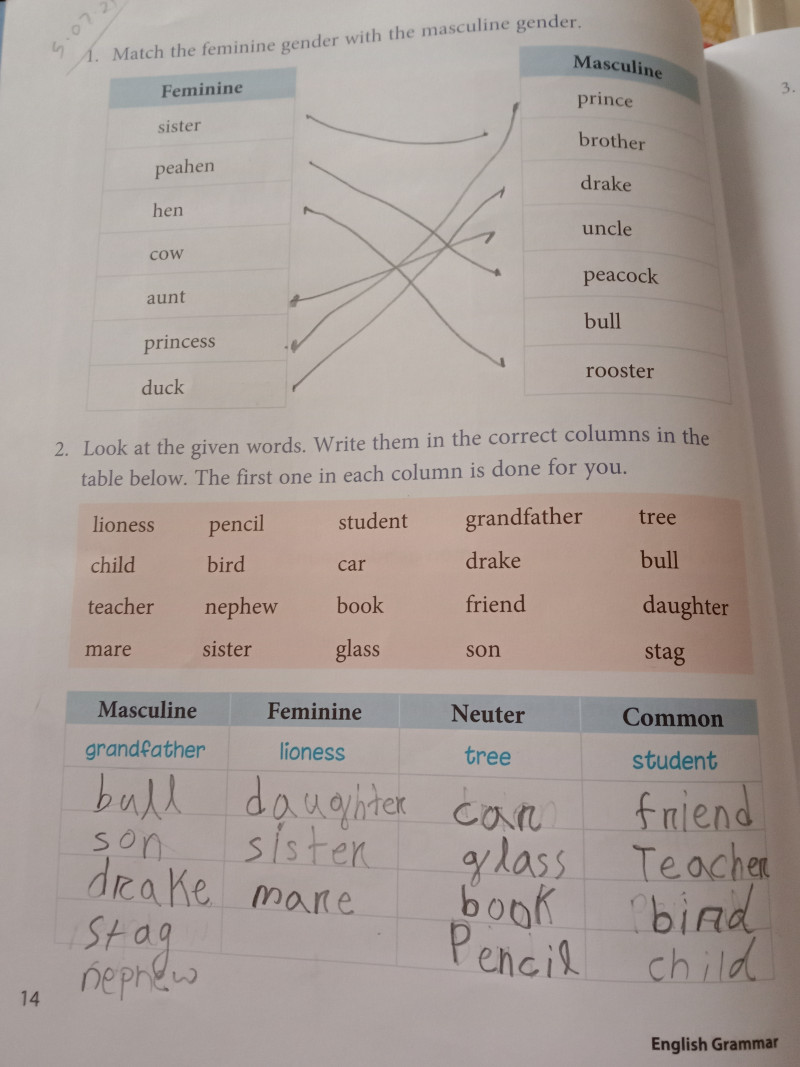 5.07.21
1. Match the feminine gender with the masculine gender.
Feminine
sister
peahen
hen
cow
aunt
princess
duck
Masculine
prince
brother
drake
uncle
peacock
bull
rooster
3.
2. Look at the given words. Write them in the correct columns in the
table below. The first one in each column is done for you.
lioness pencil student grandfather tree
child bird car drake bull
teacher nephew book friend daughter
mare sister glass son stag
Masculine Feminine Neuter Common
grandfather lioness tree student
bull daughter car friend
son sister glass Teacher
drake mare book bird
stag Pencil child
nephew
14
English Grammar